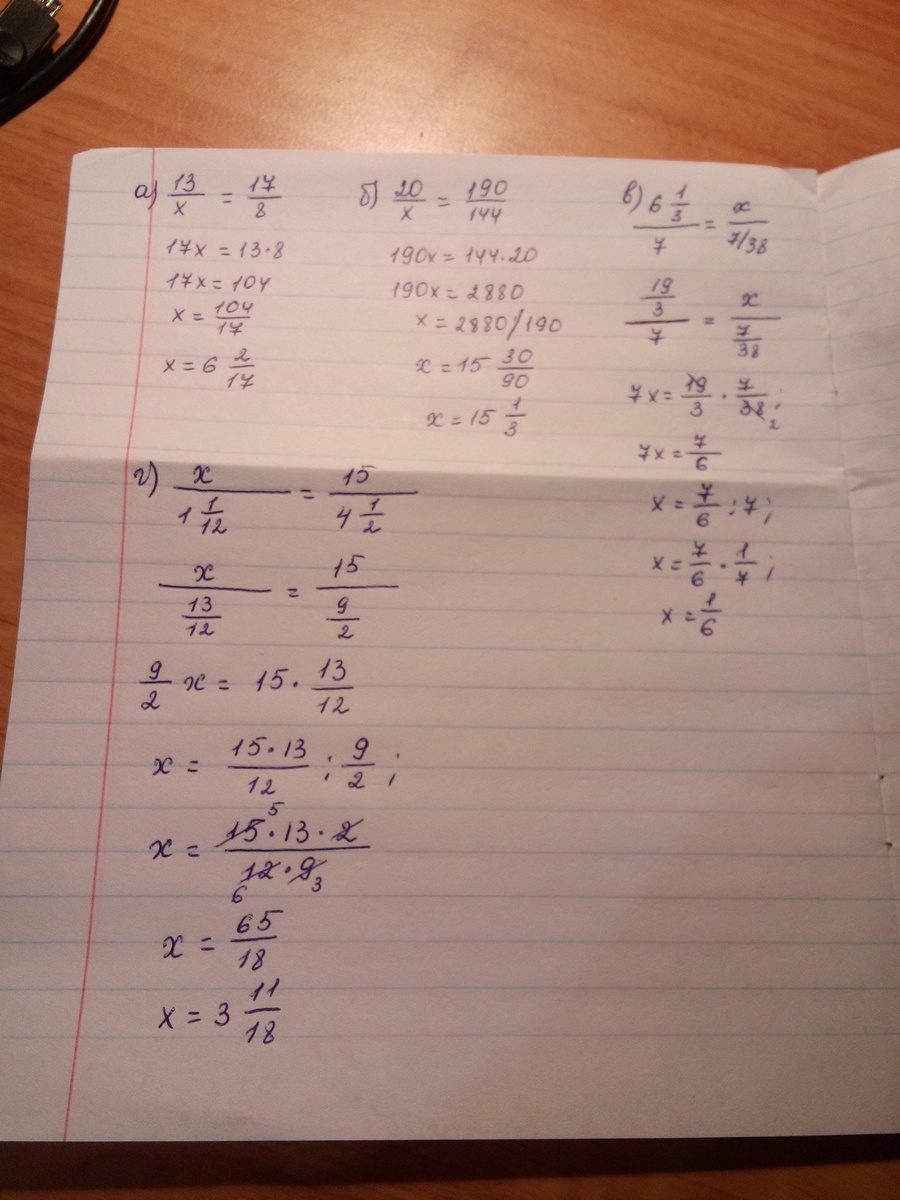 а) 13/x = 17/8
17x = 13·8
17x = 104
x = 104/17
x = 6 2/17
б) 20/x = 190/144
190x = 144·20
190x = 2880
x = 2880/190
x = 15 30/90
x = 15 1/3
в) 6 1/3 / 7 = x / 7/38
19/3 / 7 = x / 7/38
7x = 19/3 · 7/38 2;
7x = 7/6
x = 7/6 : 7;
x = 7/6 · 1/7;
x = 1/6
г) x / 1 1/12 = 15 / 4 1/2
x / 13/12 = 15 / 9/2
9/2 x = 15 · 13/12
x = 15·13/12 : 9/2;
x = 15 5·13·2 / 6 12·9 3
x = 65/18
x = 3 11/18